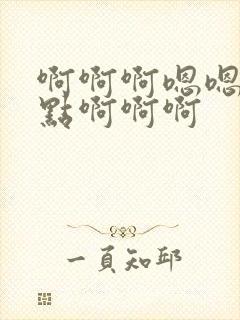 啊啊啊嗯嗯
點啊啊啊
一頁知邱